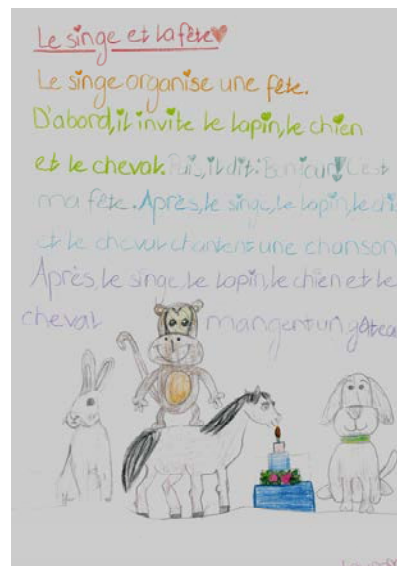 Le singe et la fête
Le singe organise une fête.
D'abord, il invite le lapin, le chien
et le cheval. Puis, il dit: Bonjour! C'est
ma fête. Après, le singe, le lapin, le chi
et le cheval chantent une chanson
Après, le singe, le lapin, le chien et le
cheval mangent un gâteau